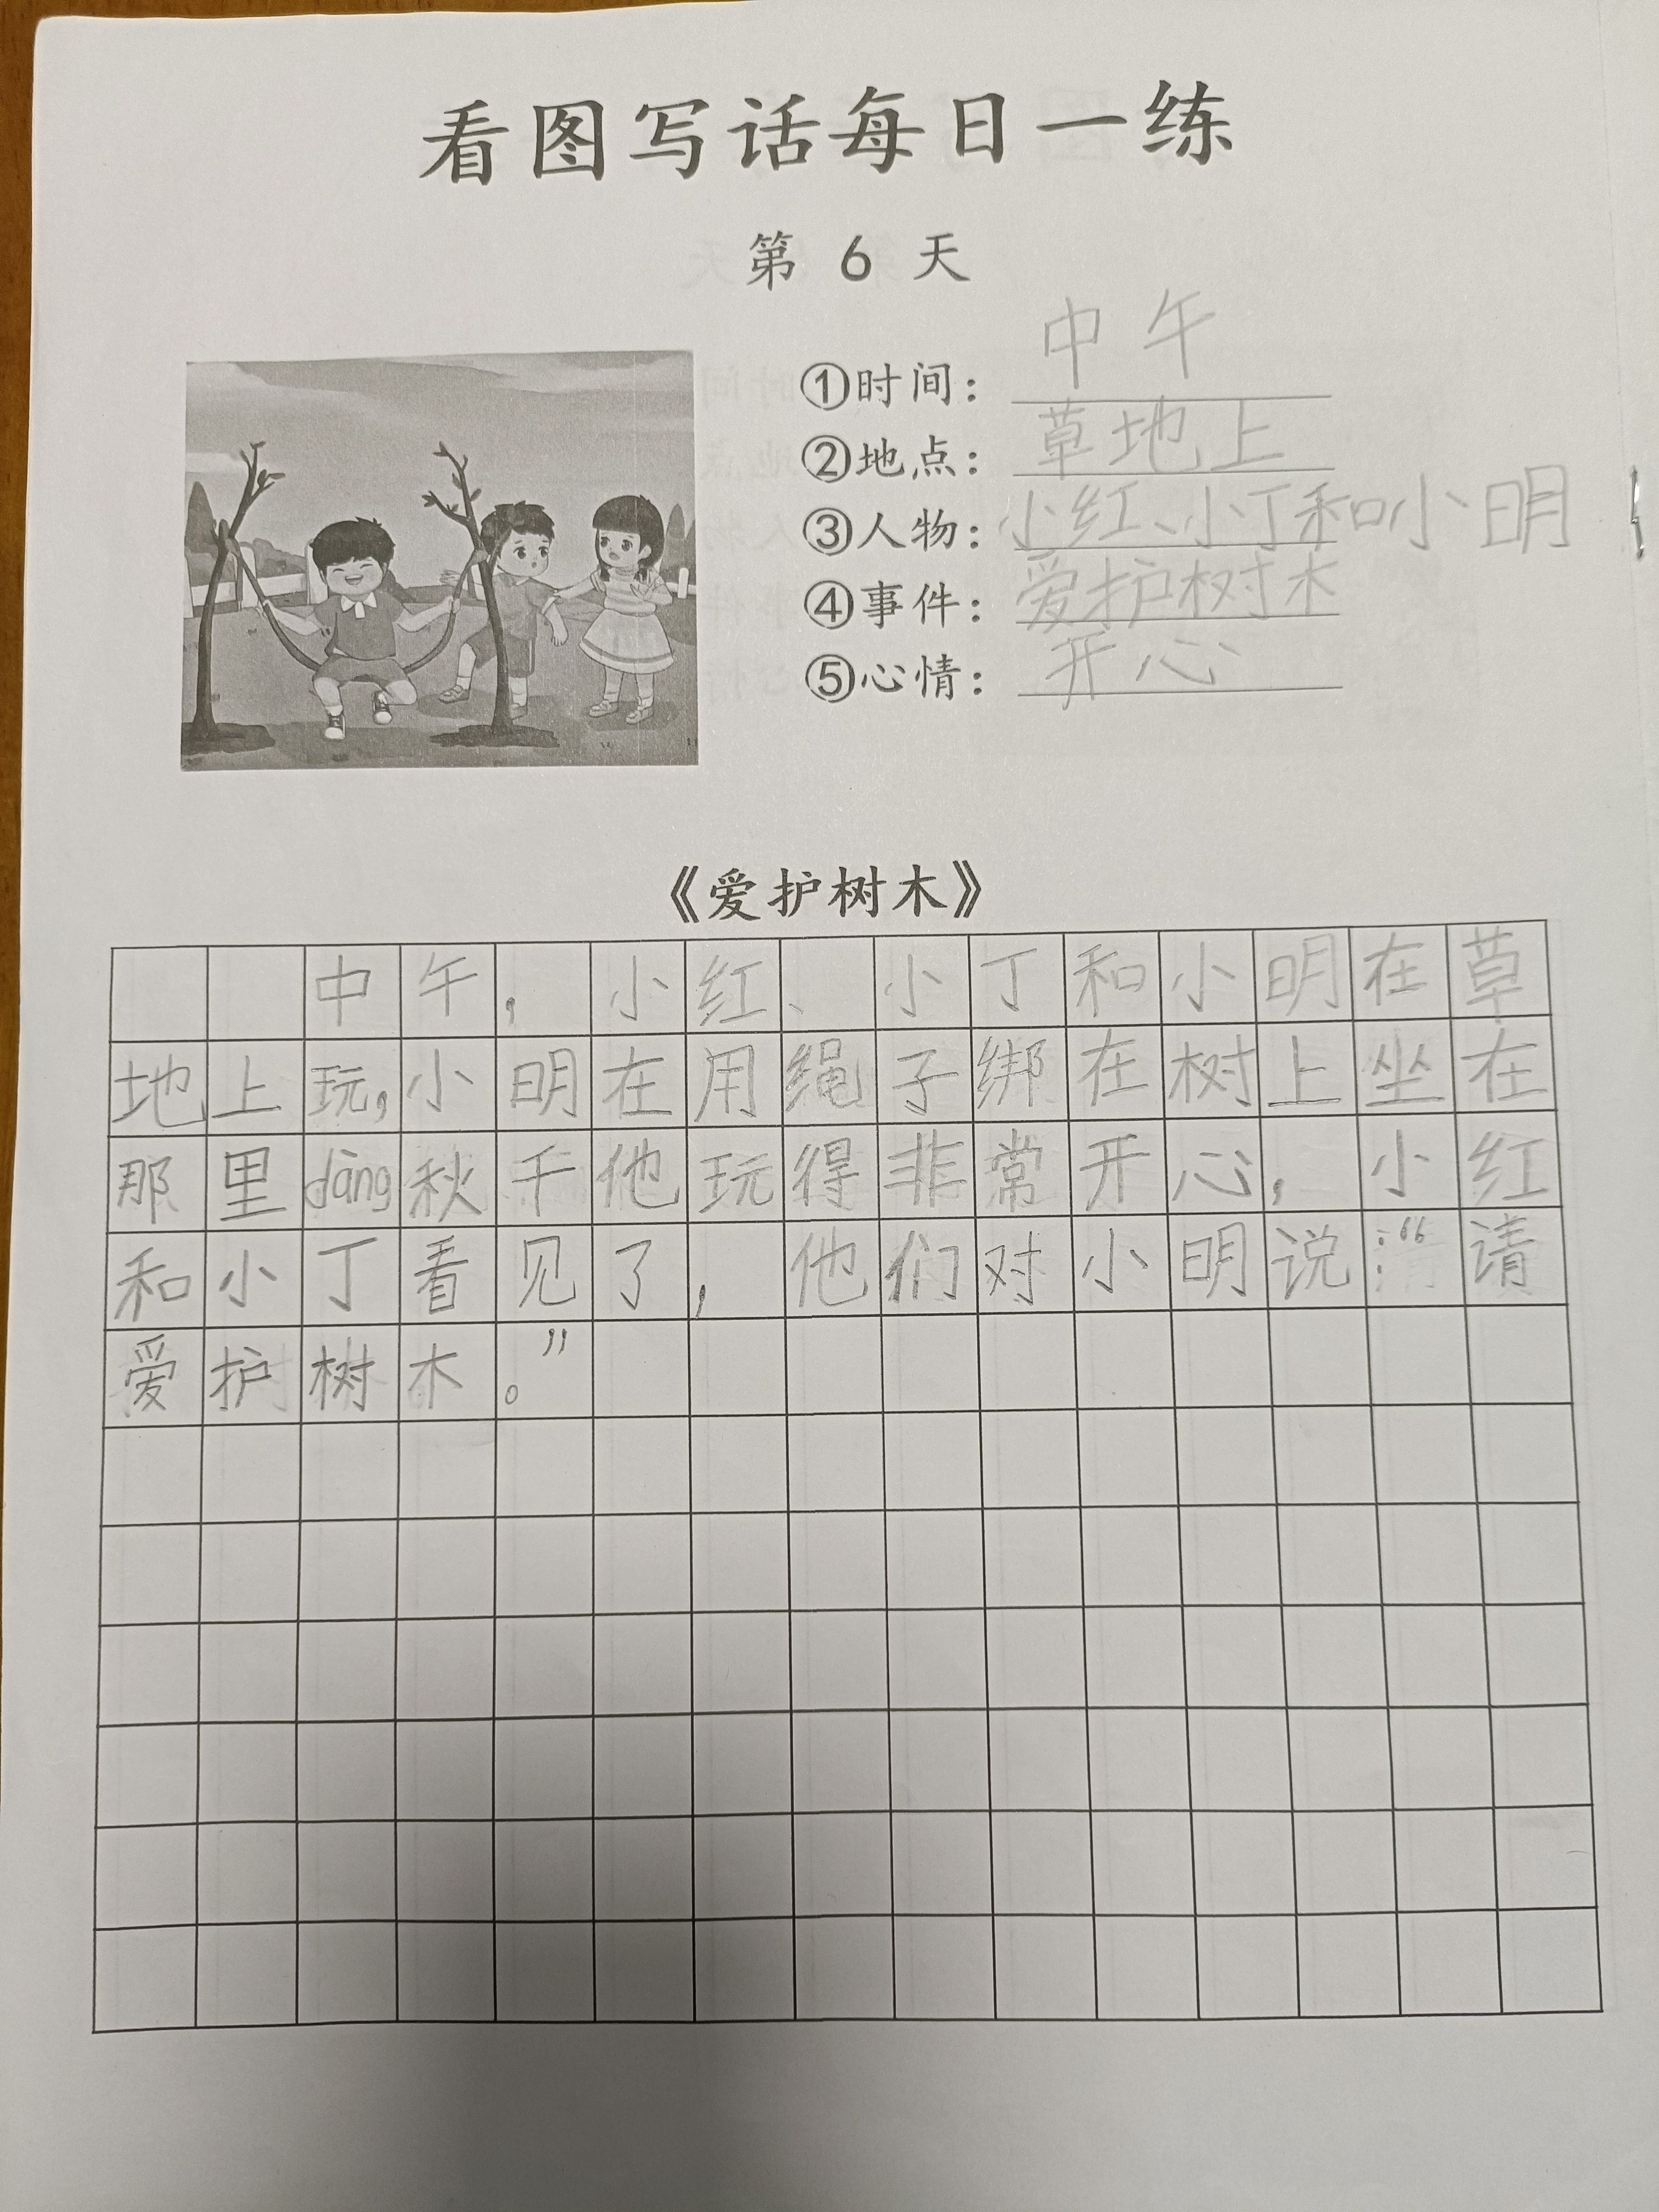 看图写话每日一练
第 6 天
①时间：中午
②地点：草地上
③人物：小红、小丁和小明
④事件：爱护树木
⑤心情：开心
《爱护树木》
中午，小红、小丁和小明在草
地上玩，小明在用绳子绑在树上坐在
那里dàng秋千他玩得非常开心，小红
和小丁看见了，他们对小明说：“请
爱护树木。”